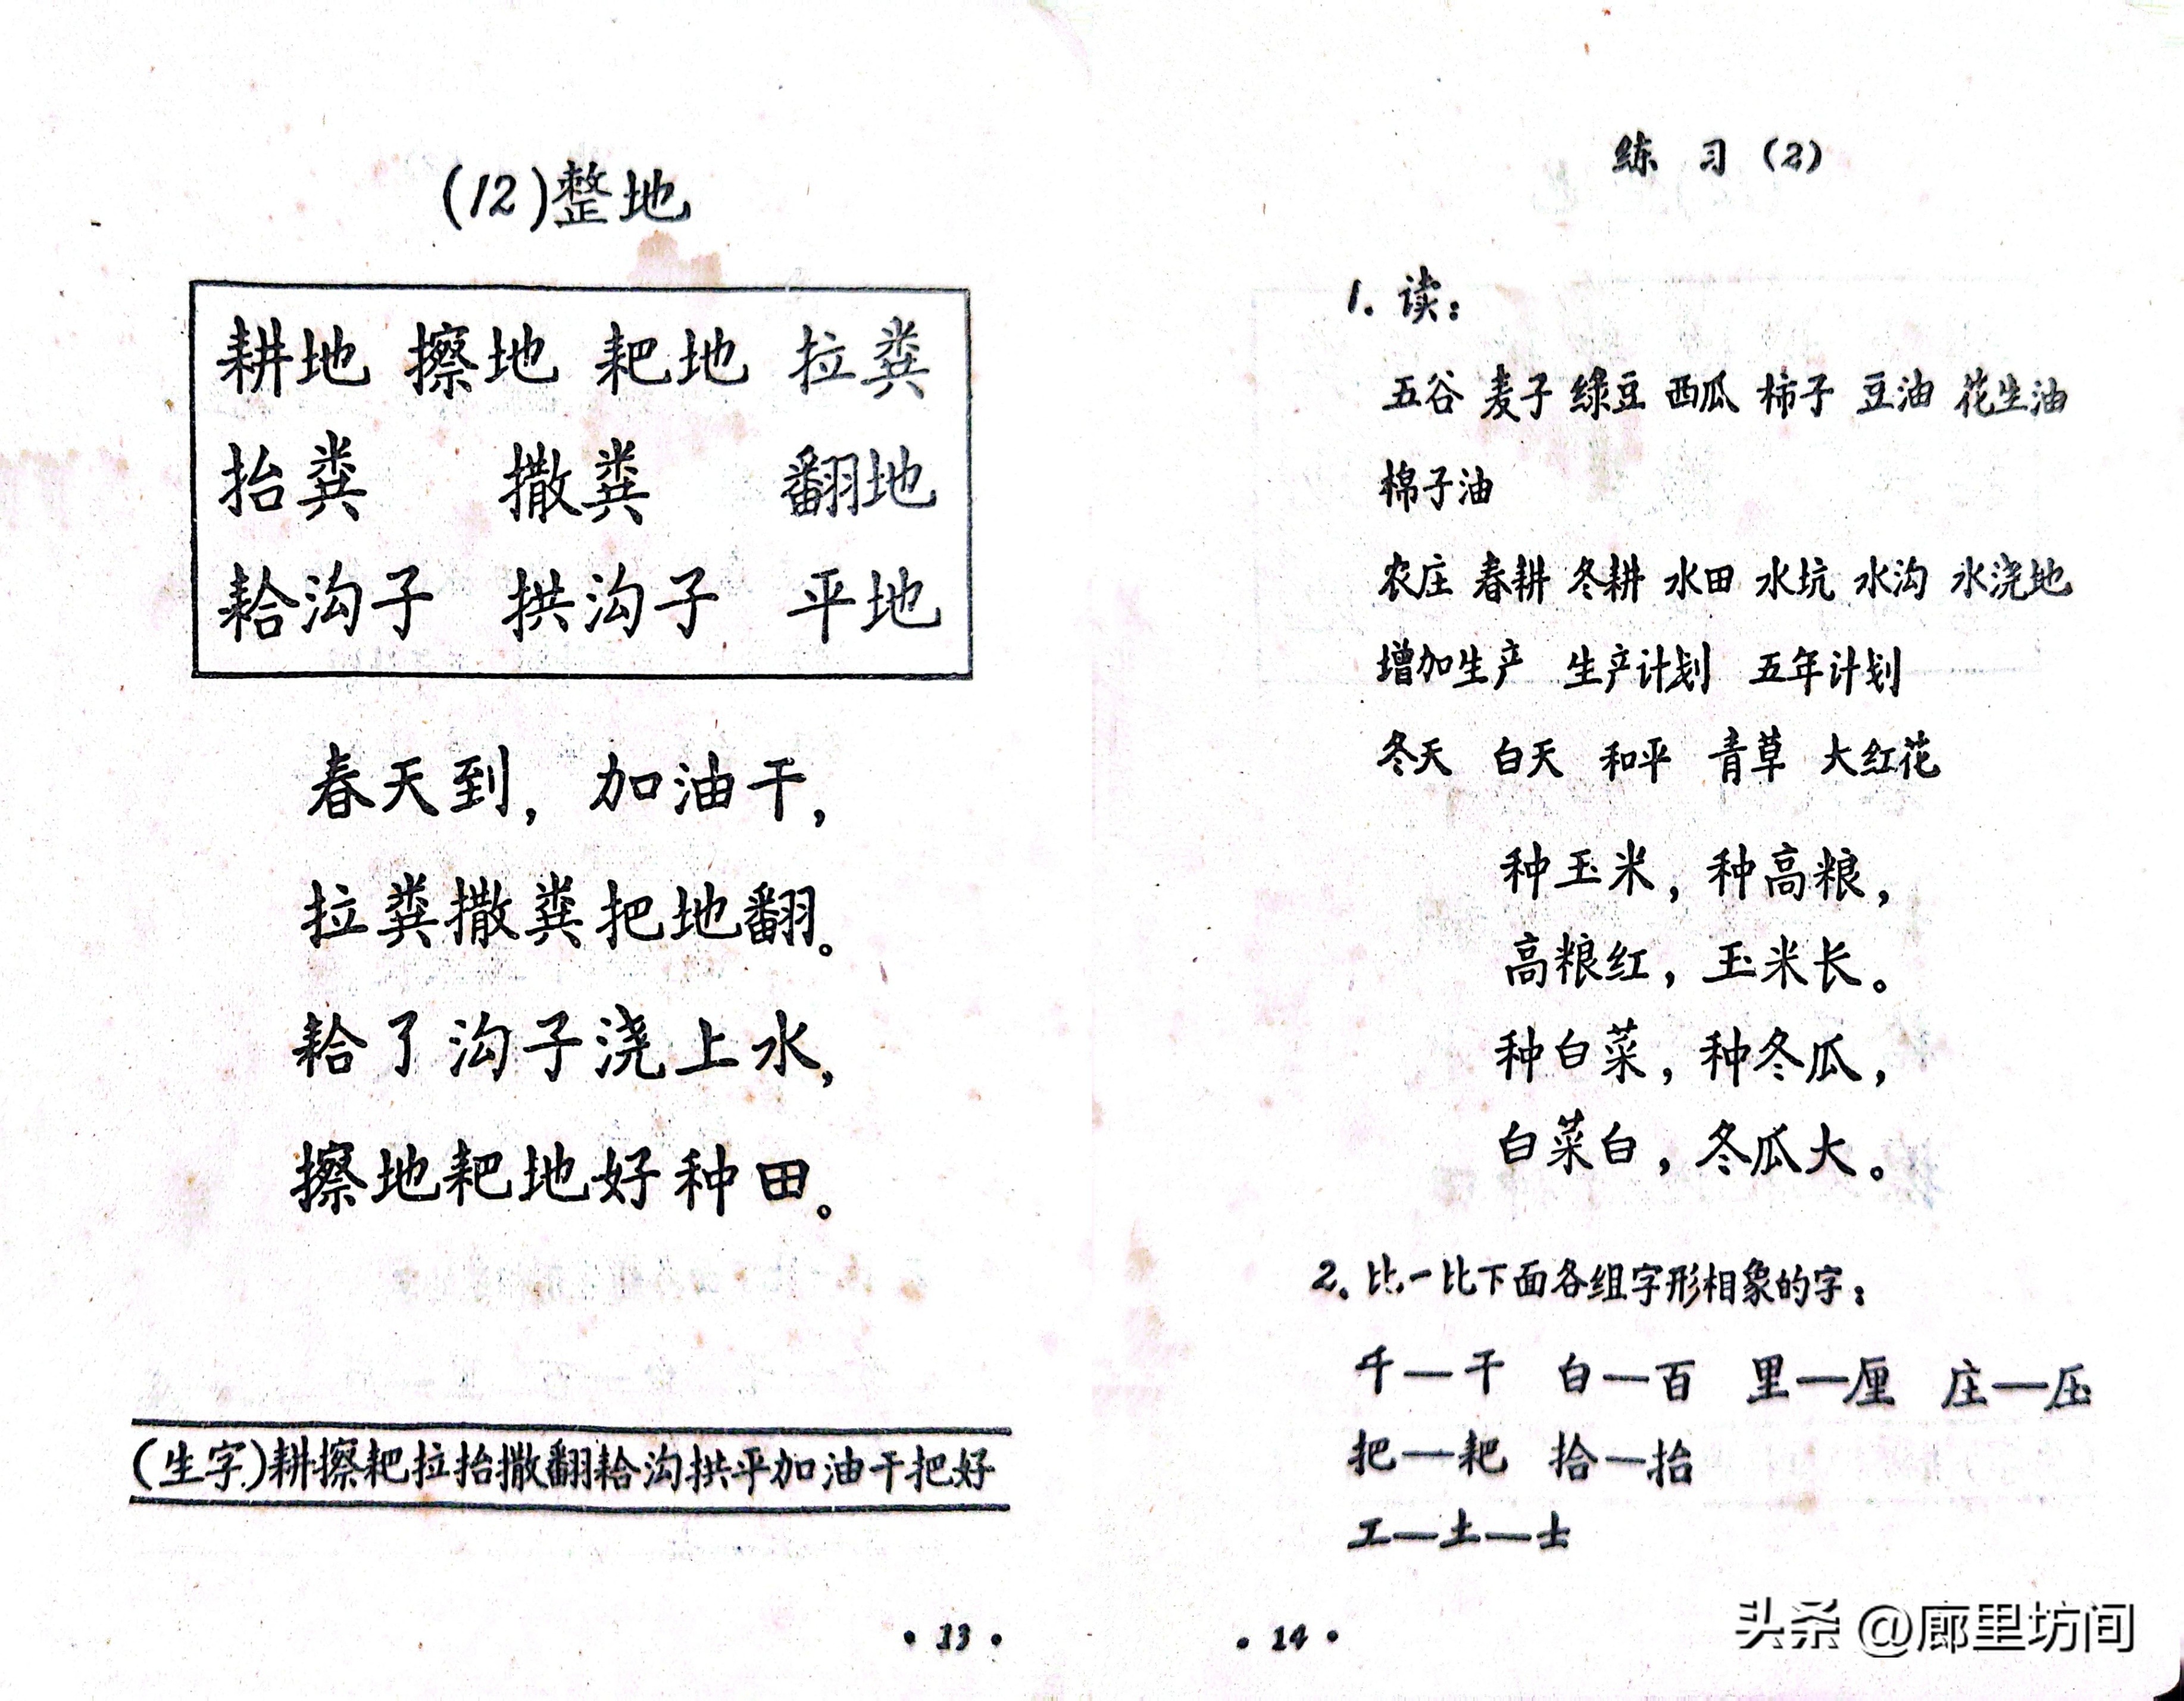 (12)整地
耕地 擦地 耙地 拉粪
抬粪 撒粪 翻地
耠沟子 拱沟子 平地
春天到，加油干，
拉粪撒粪把地翻。
耠了沟子浇上水，
擦地耙地好种田。
(生字)耕擦耙拉抬撒翻耠沟拱平加油干把好
·13·
练 习 (2)
1. 读：
五谷 麦子 绿豆 西瓜 柿子 豆油 花生油
棉子油
农庄 春耕 冬耕 水田 水坑 水沟 水浇地
增加生产 生产计划 五年计划
冬天 白天 和平 青草 大红花
种玉米，种高粮，
高粮红，玉米长。
种白菜，种冬瓜，
白菜白，冬瓜大。
2。比一比下面各组字形相象的字：
千—干 白—百 里—厘 庄—压
把—耙 拾—抬
工—土—士
·14·
头条 @廊里坊间